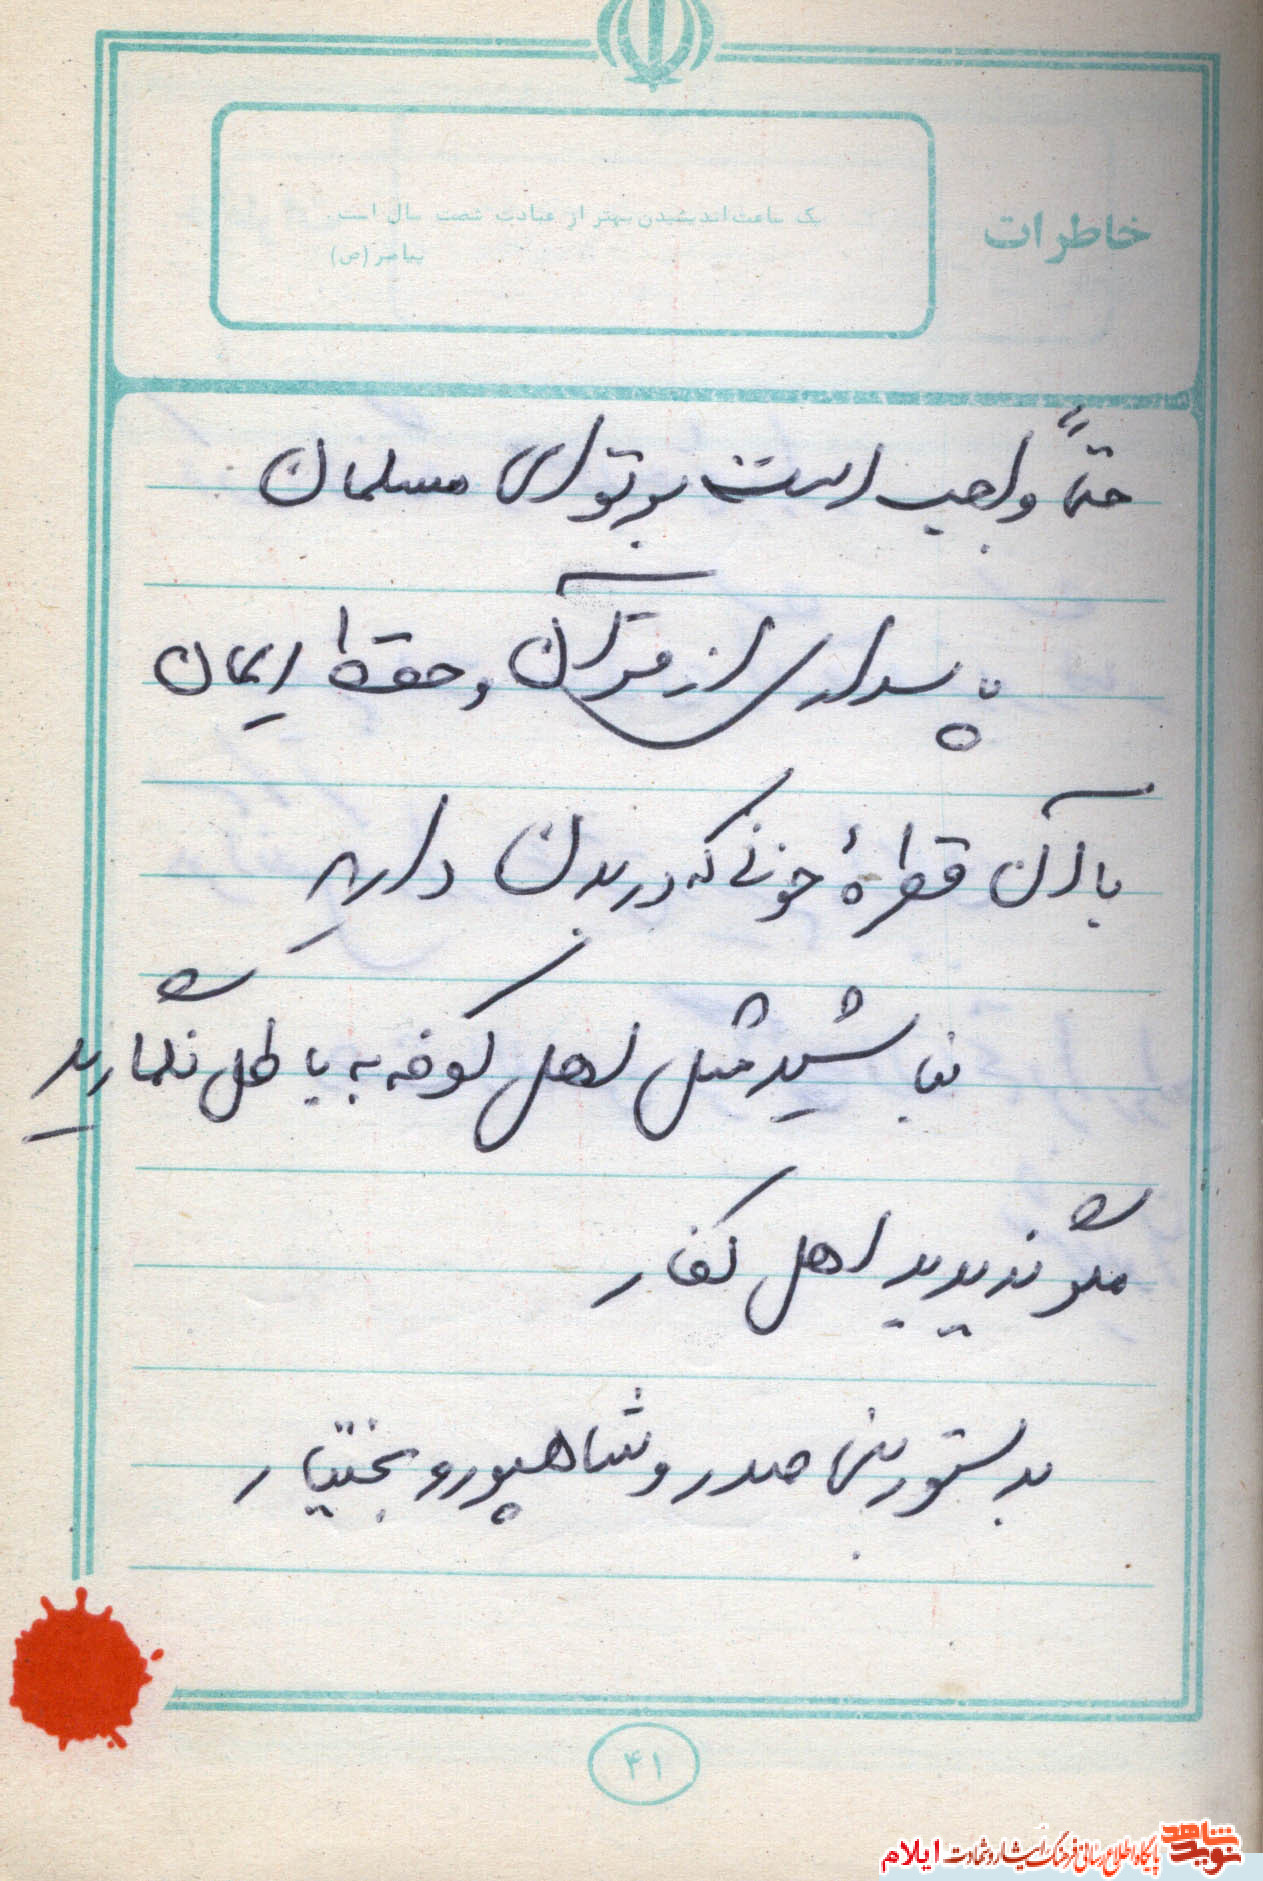 خاطرات
یک ساعت اندیشیدن بهتر از عبادت شصت سال است.
پیامبر (ص)
حتماً واجب است بر تو ای مسلمان
پاسداری از قرآن و حفظ ایمان
با آن قطرهٔ خونی که در بدن دارید
نباشید مثل اهل کوفه به باطل نگمارید
مگر ندیدید اهل کفار
بدستور بنی صدر و شاهپور و بختیار
۴۱
نوید شاهد
پایگاه اطلاع رسانی فرهنگ ایثار و شهادت ایلام